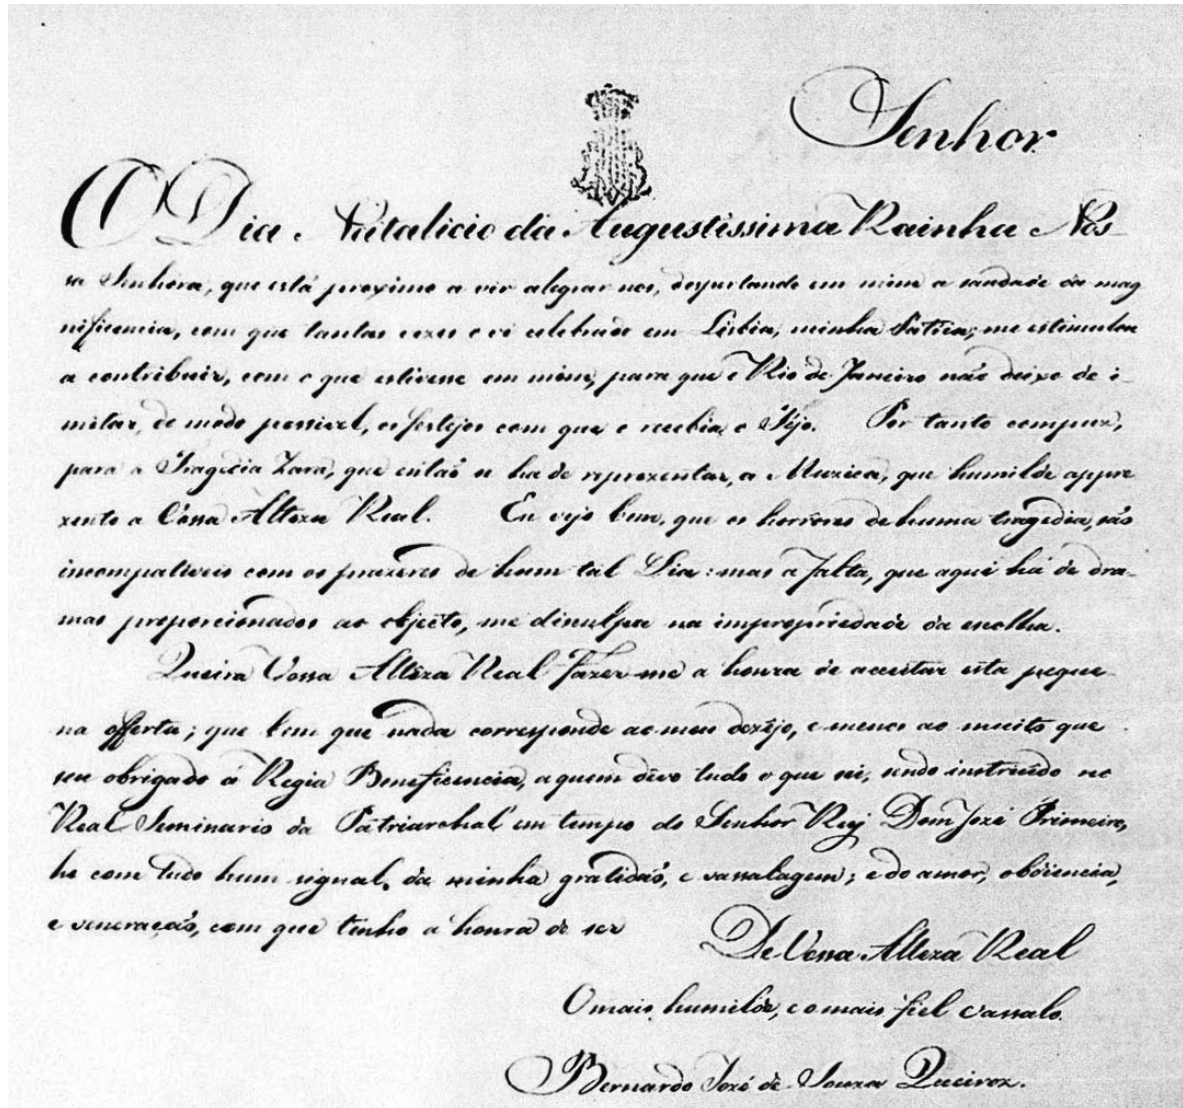 Senhor
O Dia Natalicio da Augustissima Rainha Nos-
sa Senhora, que está proximo a vir alegrar nos, despertando em mim a saudade da mag
nificencia, com que tantas vezes o vi celebrado em Lisbia, minha Patria, me estimulou
a contribuir, com o que estivesse em mim, para que o Rio de Janeiro não deixe de i-
mitar, do modo possivel, os festejos com que o recebia o Tejo. Por tanto compuz,
para a Tragedia Zara, que então se ha de reprezentar, a Muzica, que humilde appre
zento a Vossa Alteza Real. Eu vejo bem, que os horrores de huma tragedia, são
incompativeis com os prazeres de hum tal Dia: mas a falta, que aqui há de dra-
mas proporcionados ao objécto, me disculpa na impropriedade da escolha.
Queira Vossa Alteza Real Fazer-me a honra de acceitar esta peque-
na offerta; que bem que nada corresponde ao meu dezejo, e menos ao muito que
sou obrigado á Regia Beneficencia, a quem devo tudo o que sei, sendo instruido no
Real Seminario da Patriarchal em tempo do Senhor Rey Dom Jozé Primeiro,
he com tudo hum signal da minha gratidaõ, e vassalagem; e do amor, obdiencia,
e veneraçaõ, com que tenho a honra de ser
De Vossa Alteza Real
O mais humilde, e o mais fiel vassalo.
Bernardo Jozé de Souza Queiroz.